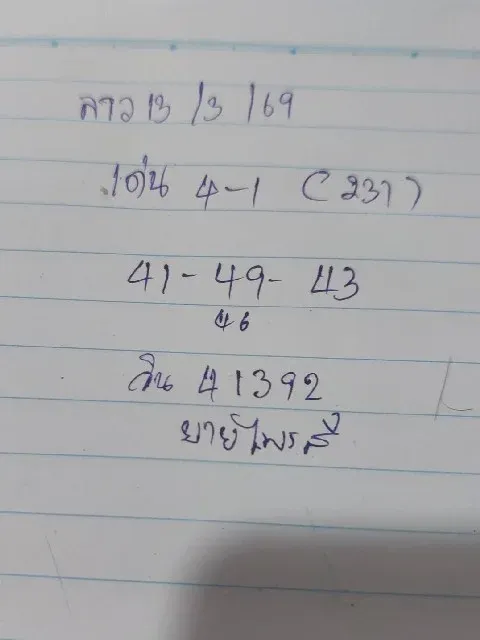 ลาว 13/3/69
เด่น 4-1 (231)
41-49-43
46
วิน 41392
ยายไพรสี